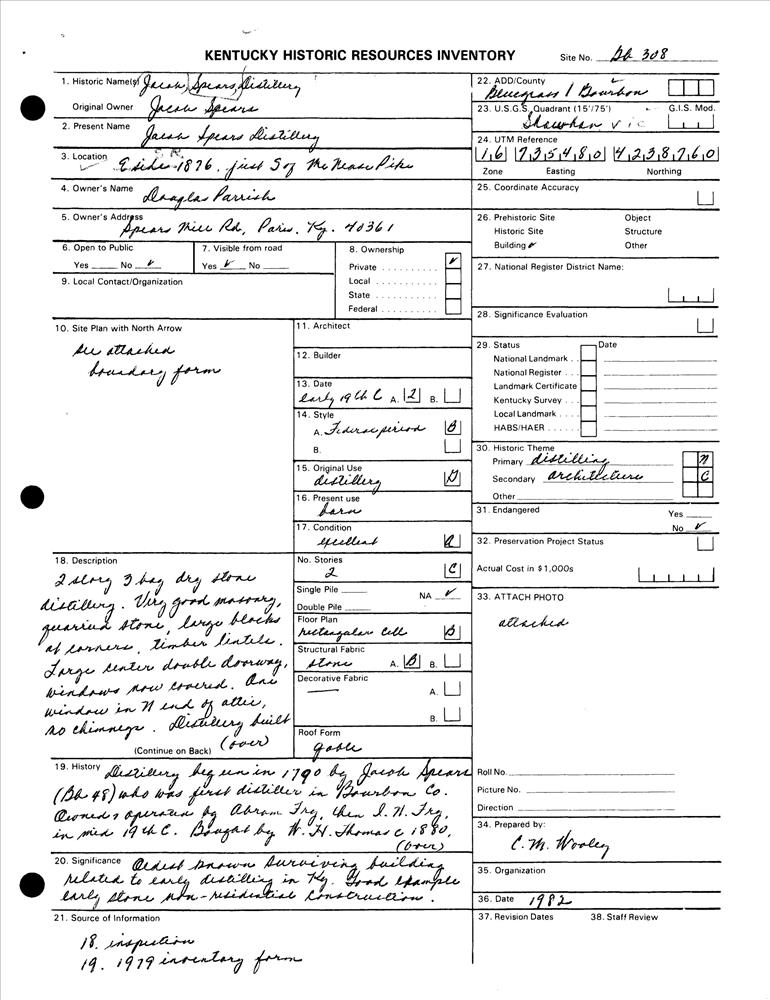 KENTUCKY HISTORIC RESOURCES INVENTORY
Site No. Bb 308
1. Historic Name(s) Jacob Spears Distillery
Original Owner Jacob Spears
2. Present Name
Jacob Spears Distillery
3. Location E side 1876, just S of McNease Pike
S.R.
4. Owner's Name
Douglas Parrish
5. Owner's Address
Spears Mill Rd, Paris, Ky. 40361
6. Open to Public
Yes No ✓
7. Visible from road
Yes ✓ No
8. Ownership
Private ✓
Local
State
Federal
9. Local Contact/Organization
10. Site Plan with North Arrow
see attached
boundary form
11. Architect
12. Builder
13. Date
early 19th C A. 2 B.
14. Style
A. Federal period B
B.
15. Original Use
distillery D
16. Present use
barn
17. Condition
excellent A
18. Description
2 story 3 bay dry stone
distillery. Very good masonry,
quarried stone, large blocks
at corners, timber lintels.
Large center double doorway,
windows now covered. One
window in N end of attic,
no chimneys. Distillery built
(Continue on Back) (over)
No. Stories
2 C
Single Pile
NA ✓
Double Pile
Floor Plan
rectangular cell B
Structural Fabric
stone A. B B.
Decorative Fabric
— A.
B.
Roof Form
gable
19. History Distillery begun in 1790 by Jacob Spears
(Bb 48) who was first distiller in Bourbon Co.
Owned & operated by Abram Fry, then I. N. Fry,
in mid 19th C. Bought by W. H. Thomas c 1880,
(over)
20. Significance Oldest known surviving building
related to early distilling in Ky. Good example
early stone non-residential construction.
21. Source of Information
18. inspection
19. 1979 inventory form
22. ADD/County
Bluegrass / Bourbon
23. U.S.G.S. Quadrant (15'/75') G.I.S. Mod.
Shawhan
24. UTM Reference
16 735480 4238760
Zone Easting Northing
25. Coordinate Accuracy
26. Prehistoric Site Object
Historic Site Structure
Building ✓ Other
27. National Register District Name:
28. Significance Evaluation
29. Status Date
National Landmark
National Register
Landmark Certificate
Kentucky Survey
Local Landmark
HABS/HAER
30. Historic Theme
Primary distilling N
Secondary architecture C
Other
31. Endangered Yes
No ✓
32. Preservation Project Status
Actual Cost in $1,000s
33. ATTACH PHOTO
attached
Roll No.
Picture No.
Direction
34. Prepared by:
C. M. Wooley
35. Organization
36. Date 1982
37. Revision Dates 38. Staff Review